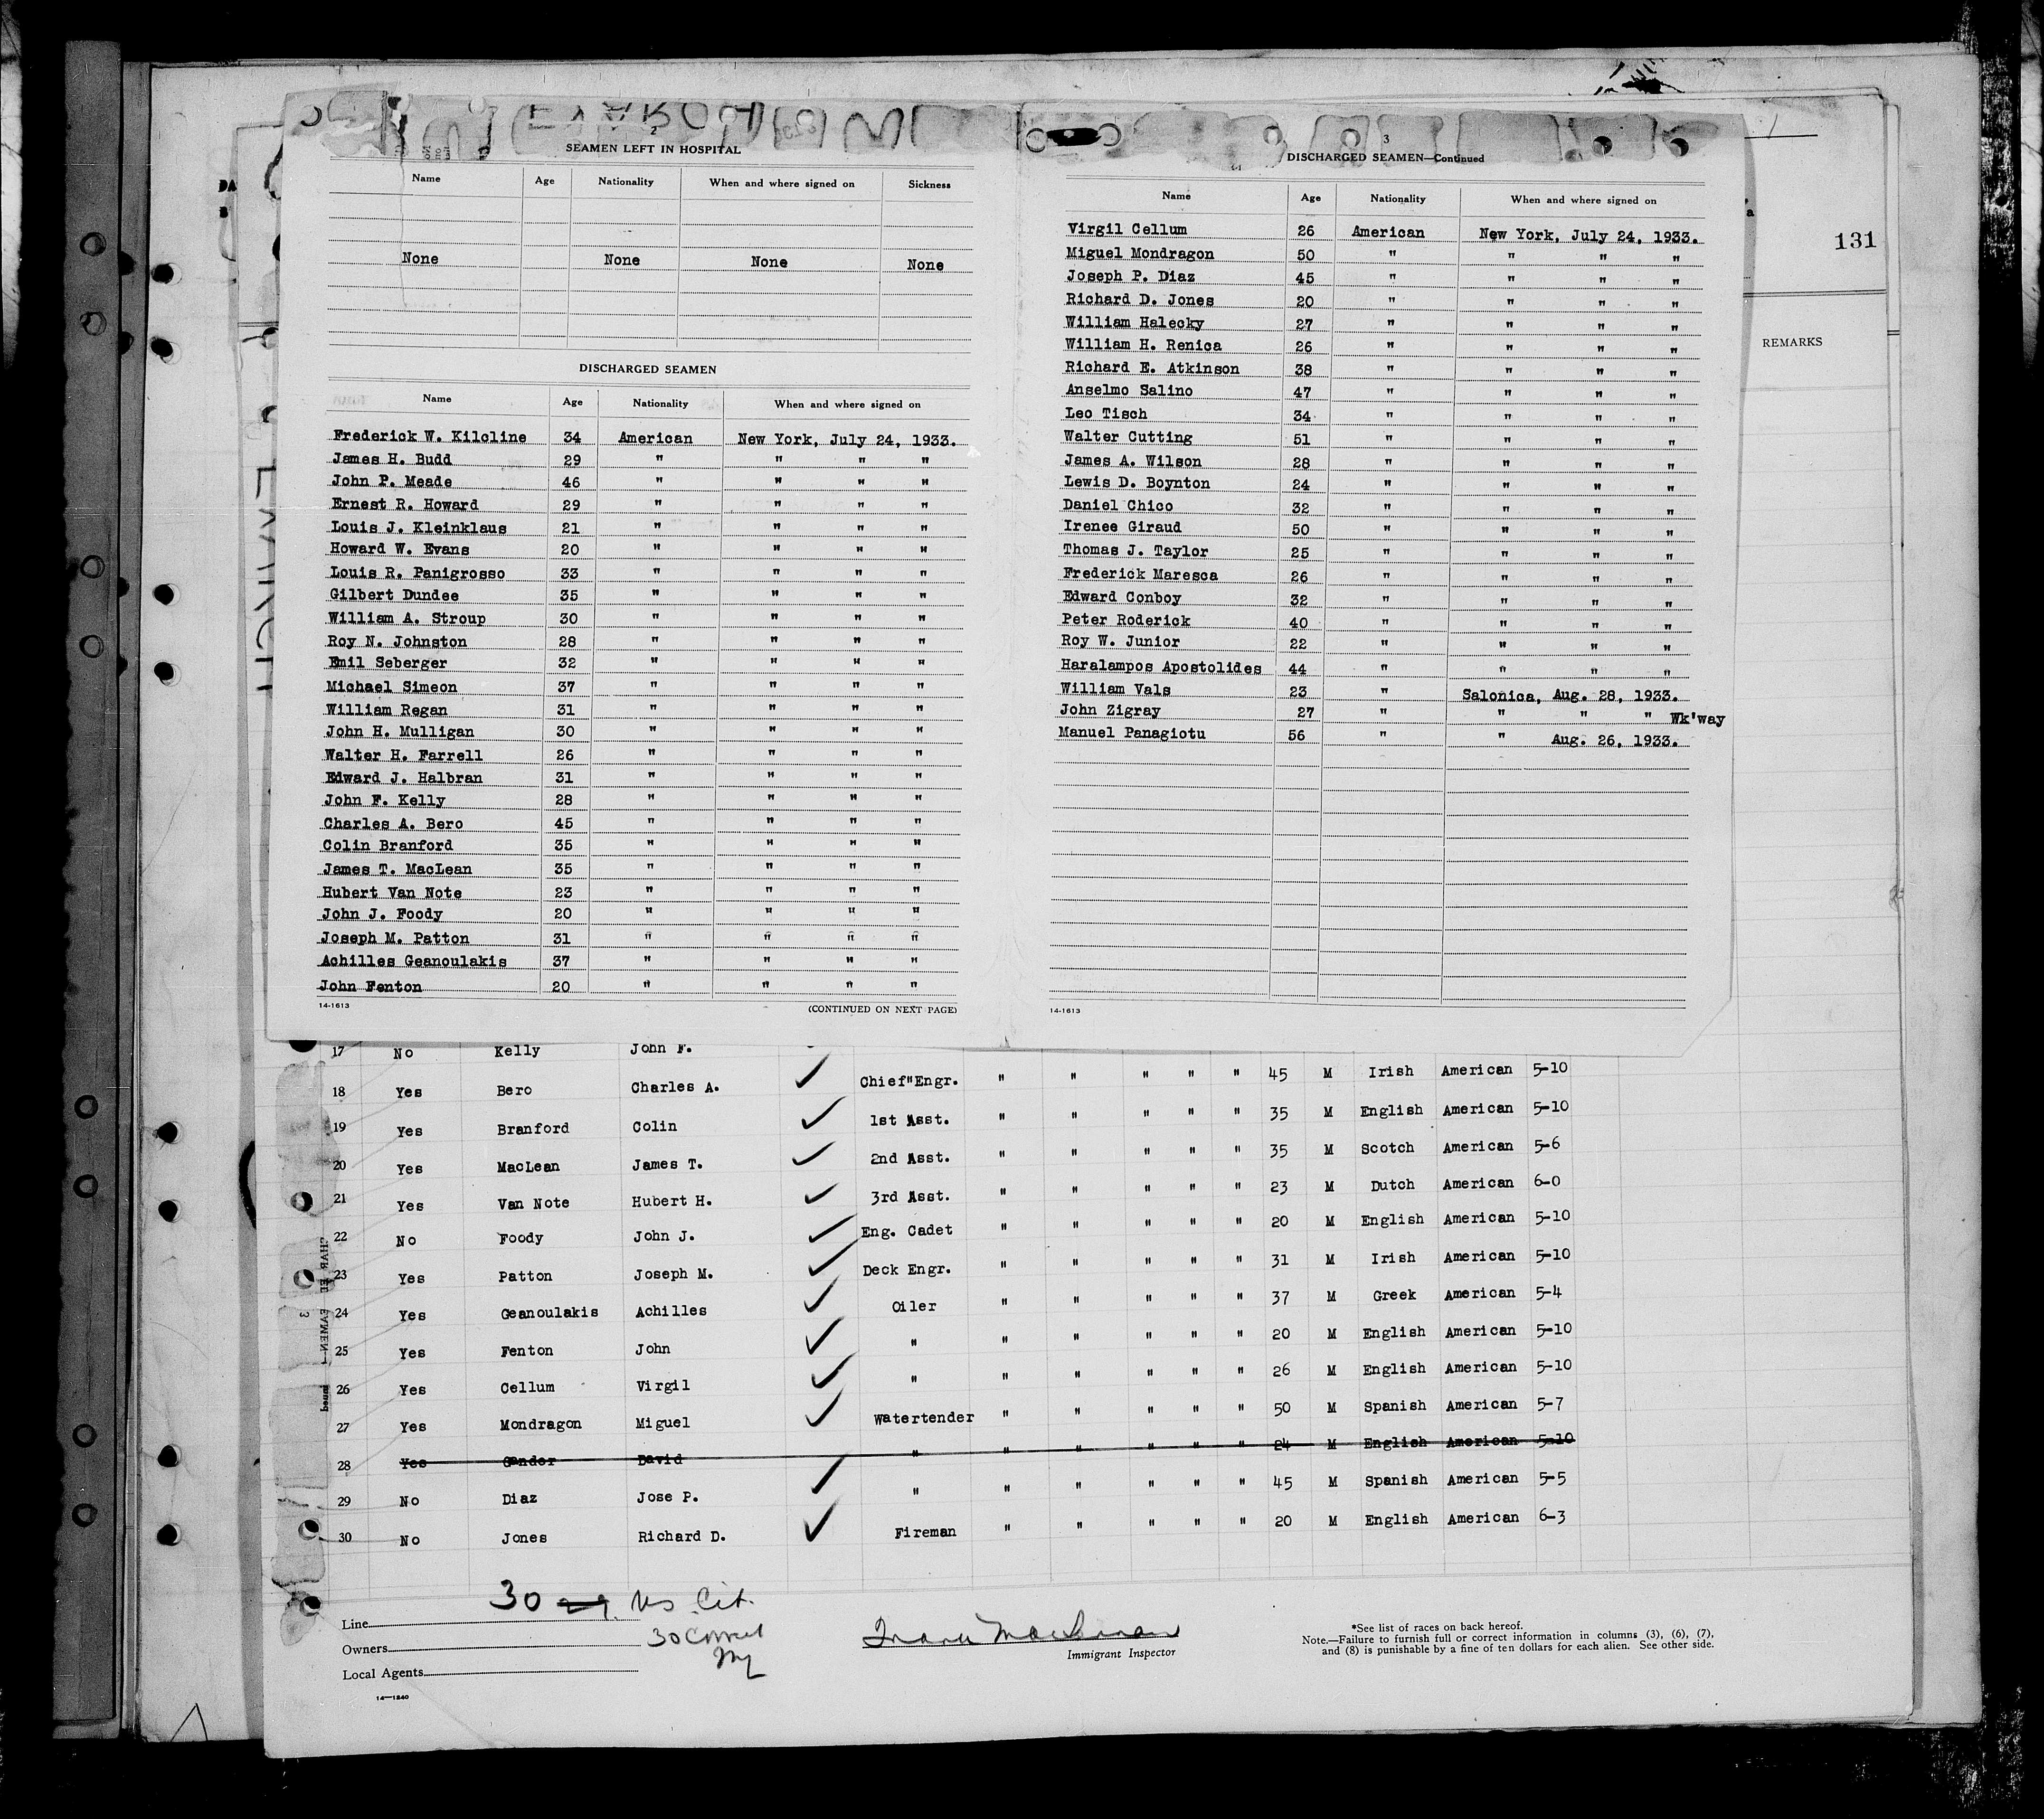 2
SEAMEN LEFT IN HOSPITAL
Name Age Nationality When and where signed on Sickness
None None None None
DISCHARGED SEAMEN
Name Age Nationality When and where signed on
Frederick W. Kilcline 34 American New York, July 24, 1933.
James H. Budd 29 " " " "
John P. Meade 46 " " " "
Ernest R. Howard 29 " " " "
Louis J. Kleinklaus 21 " " " "
Howard W. Evans 20 " " " "
Louis R. Panigrosso 33 " " " "
Gilbert Dundee 35 " " " "
William A. Stroup 30 " " " "
Roy N. Johnston 28 " " " "
Emil Seberger 32 " " " "
Michael Simeon 37 " " " "
William Regan 31 " " " "
John H. Mulligan 30 " " " "
Walter H. Farrell 26 " " " "
Edward J. Halbran 31 " " " "
John F. Kelly 28 " " " "
Charles A. Bero 45 " " " "
Colin Branford 35 " " " "
James T. MacLean 35 " " " "
Hubert Van Note 23 " " " "
John J. Foody 20 " " " "
Joseph M. Patton 31 " " " "
Achilles Geanoulakis 37 " " " "
John Fenton 20 " " " "
14-1613 (CONTINUED ON NEXT PAGE)
3
DISCHARGED SEAMEN—Continued
Name Age Nationality When and where signed on
Virgil Cellum 26 American New York, July 24, 1933.
Miguel Mondragon 50 " " " "
Joseph P. Diaz 45 " " " "
Richard D. Jones 20 " " " "
William Halecky 27 " " " "
William H. Renica 26 " " " "
Richard E. Atkinson 38 " " " "
Anselmo Salino 47 " " " "
Leo Tisch 34 " " " "
Walter Cutting 51 " " " "
James A. Wilson 28 " " " "
Lewis D. Boynton 24 " " " "
Daniel Chico 32 " " " "
Irenee Giraud 50 " " " "
Thomas J. Taylor 25 " " " "
Frederick Maresca 26 " " " "
Edward Conboy 32 " " " "
Peter Roderick 40 " " " "
Roy W. Junior 22 " " " "
Haralampos Apostolides 44 " " " "
William Vals 23 " Salonica, Aug. 28, 1933.
John Zigray 27 " " " " Wk'way
Manuel Panagiotu 56 " " Aug. 26, 1933.
14-1613
131
REMARKS
17 No Kelly John F.
18 Yes Bero Charles A. Chief"Engr. " " " " " 45 M Irish American 5-10
19 Yes Branford Colin 1st Asst. " " " " " 35 M English American 5-10
20 Yes MacLean James T. 2nd Asst. " " " " " 35 M Scotch American 5-6
21 Yes Van Note Hubert H. 3rd Asst. " " " " " 23 M Dutch American 6-0
22 No Foody John J. Eng. Cadet " " " " " 20 M English American 5-10
23 Yes Patton Joseph M. Deck Engr. " " " " " 31 M Irish American 5-10
24 Yes Geanoulakis Achilles Oiler " " " " " 37 M Greek American 5-4
25 Yes Fenton John " " " " " " 20 M English American 5-10
26 Yes Cellum Virgil " " " " " " 26 M English American 5-10
27 Yes Mondragon Miguel Watertender " " " " " 50 M Spanish American 5-7
28 Yes Gandor David " " " " " " 24 M English American 5-10
29 No Diaz Jose P. " " " " " " 45 M Spanish American 5-5
30 No Jones Richard D. Fireman " " " " " 20 M English American 6-3
30 29. US. Cit.
Line
Owners
30 Correct
Local Agents
14—1240
Immigrant Inspector
*See list of races on back hereof.
Note.—Failure to furnish full or correct information in columns (3), (6), (7),
and (8) is punishable by a fine of ten dollars for each alien. See other side.